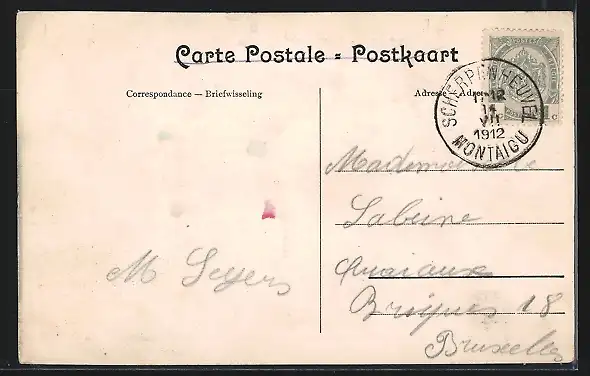 Carte Postale - Postkaart
Correspondance — Briefwisseling
Adresse - Adres
SCHERPENHEUVEL
11-12
14
VII
1912
MONTAIGU
1 c
Mademoiselle
Sabine
M Seyers
Quai aux
Briques 18
Bruxelles